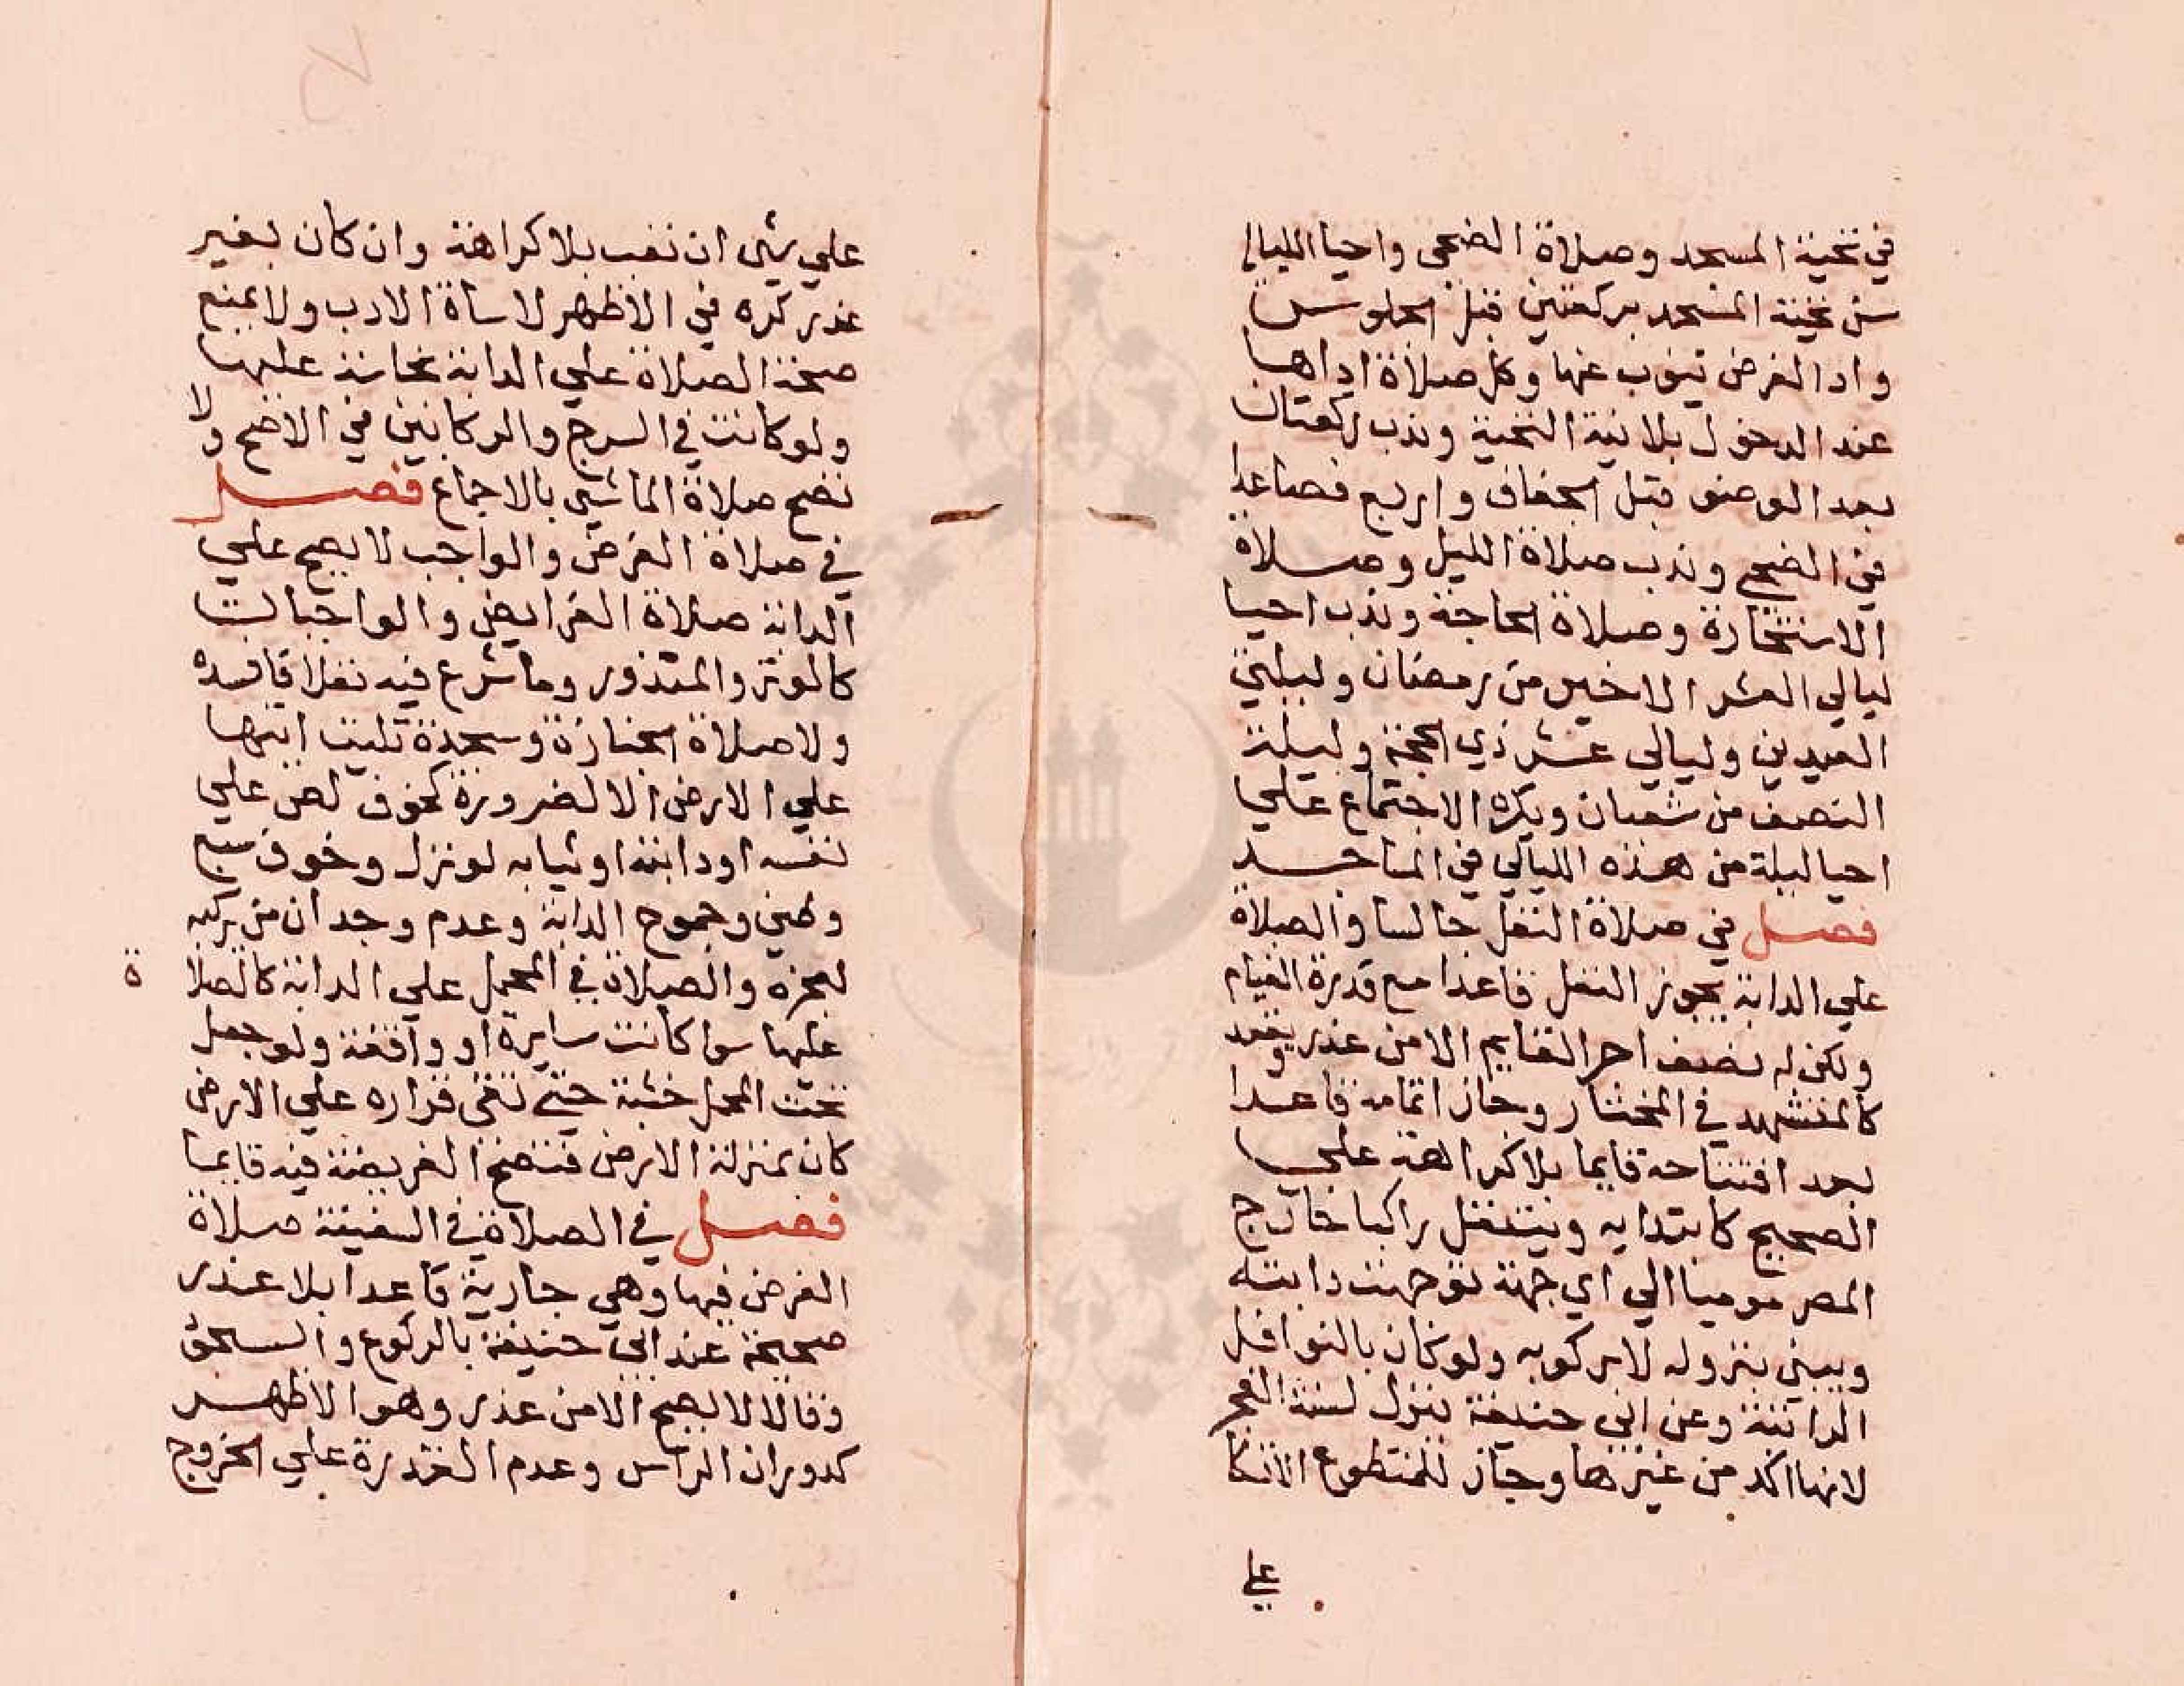 في تحية المسجد وصلاة الضحى واحيا الليالي
سن تحية المسجد بركعتين قبل الجلوس
وادا الفرض ينوب عنها وكل صلاة اداها
عند الدخول بلا نية التحية وندب ركعتان
بعد الوضو قبل الجفاف واربع فصاعدا
في الضحي وندب صلاة الليل وصلاة
الاستخارة وصلاة الحاجة وندب احيا
ليالي العشر الاخير من رمضان وليلتي
العيدين وليالي عشر ذي الحجة وليلة
النصف من شعبان ويكره الاجتماع علي
احيا ليلة من هذه الليالي في المساجد
فصل في صلاة النفل جالسا والصلاة
علي الدابة يجوز النفل قاعدا مع قدرة القيام
ولكن له نصف اجر القايم الا من عذر ويقعد
كالمتشهد في المختار وجاز اتمامه قاعدا
بعد افتتاحه قايما بلا كراهة علي
الصحيح كابتدايه ويتنفل راكبا خارج
المصر موميا الي اي جهة توجهت دابته
ويبني بنزوله لا بركوبه ولو كان بالنوافل
الراتبة وعن ابي حنيفة ينزل لسنة الفجر
لانها اكد من غيرها وجاز للمتطوع الاتكا
علي
علي شي ان تعب بلا كراهة وان كان بغير
عذر كره في الاظهر لاساة الادب ولا يمنع
صحة الصلاة علي الدابة نجاسة عليها
ولو كانت في السرج والركابين في الاصح ولا
تصح صلاة الماشي بالاجماع فصل
في صلاة الفرض والواجب لا يصح علي
الدابة صلاة الفرايض والواجبات
كالوتر والمنذور وما شرع فيه نفلا فافسده
ولا صلاة الجنازة وسجدة تليت ايتها
علي الارض الا لضرورة كخوف لص علي
نفسه او دابته او ثيابه لو نزل وخوف سبع
وطين وجموح الدابة وعدم وجدان من يركبه
لعجزه والصلاة في المحمل علي الدابة كالصلاة
عليها سوا كانت سايرة او واقفة ولو جعل
تحت المحمل خشبة حتي بقي قراره علي الارض
كان بمنزلة الارض فتصح الفريضة فيه قايما
فصل في الصلاة في السفينة صلاة
الفرض فيها وهي جارية قاعدا بلا عذر
صحيحة عند ابي حنيفة بالركوع والسجود
وقالا لا يصح الا من عذر وهو الاظهر
كدوران الراس وعدم القدرة علي الخروج